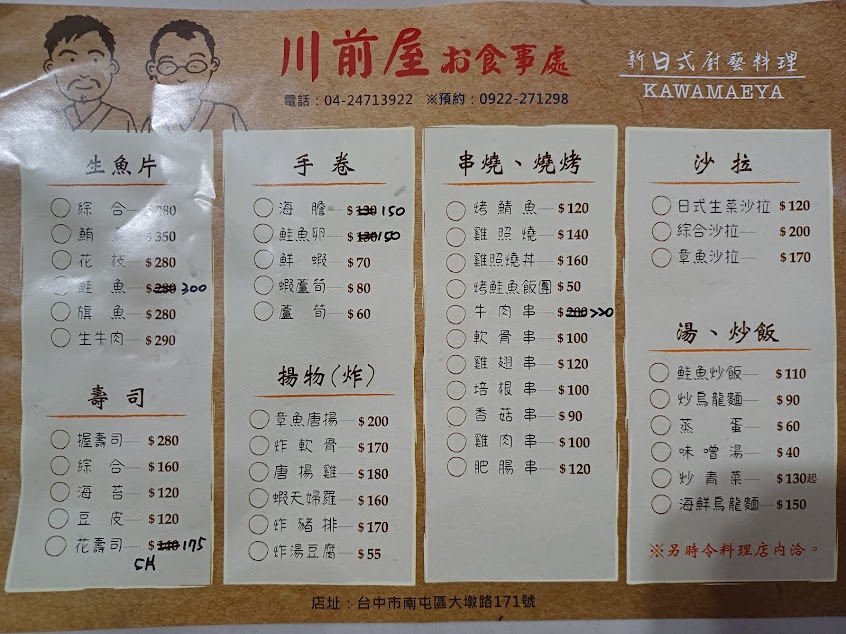 川前屋 お食事處
新日式廚藝料理
KAWAMAEYA
電話：04-24713922 ※預約：0922-271298
生魚片
綜合
鮪 $350
花枝 $280
鮭魚 $280 300
旗魚 $280
生牛肉 $290
壽司
握壽司 $280
綜合 $160
海苔 $120
豆皮 $120
花壽司 $140 175
5片
手卷
海膽 $130 150
鮭魚卵 $130 150
鮮蝦 $70
蝦蘆筍 $80
蘆筍 $60
揚物(炸)
章魚唐揚 $200
炸軟骨 $170
唐揚雞 $180
蝦天婦羅 $160
炸豬排 $170
炸湯豆腐 $55
串燒、燒烤
烤鯖魚 $120
雞照燒 $140
雞照燒丼 $160
烤鮭魚飯團 $50
牛肉串 $200 220
軟骨串 $100
雞翅串 $120
培根串 $100
香菇串 $90
雞肉串 $100
肥腸串 $120
沙拉
日式生菜沙拉 $120
綜合沙拉 $200
章魚沙拉 $170
湯、炒飯
鮭魚炒飯 $110
炒烏龍麵 $90
蒸蛋 $60
味噌湯 $40
炒青菜 $130起
海鮮烏龍麵 $150
※另時令料理店內洽。
店址：台中市南屯區大墩路171號